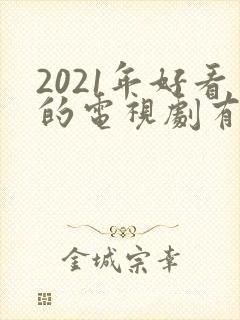 2021年好看
的電視劇有
金城宗幸